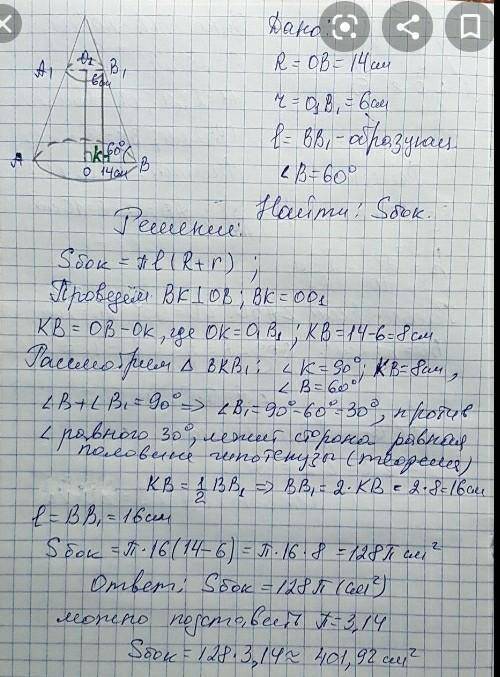 Дано:
R = OB = 14 см
r = O₁B₁ = 6 см
l = BB₁ - образующ.
∠B = 60°
Найти: Sбок.
A₁ O₁ B₁
6см
A K 60° B
O 14 см
Решение:
Sбок = πl(R+r) ;
Проведём BK⊥OB; BK = OO₁
KB = OB - OK, где OK = O₁B₁ ; KB = 14-6 = 8см
Рассмотрим △ BKB₁: ∠K = 90°, KB = 8см,
∠B = 60°
∠B + ∠B₁ = 90° => ∠B₁ = 90° - 60° = 30°, против
∠ равного 30°, лежит сторона равная
половине гипотенузы (теорема)
KB = 1/2 BB₁ => BB₁ = 2 · KB = 2 · 8 = 16см
l = BB₁ = 16 см
Sбок = π · 16(14-6) = π · 16 · 8 = 128π см²
Ответ: Sбок = 128π (см²)
можно подставить π = 3,14
Sбок = 128 · 3,14 ≈ 401,92 см²